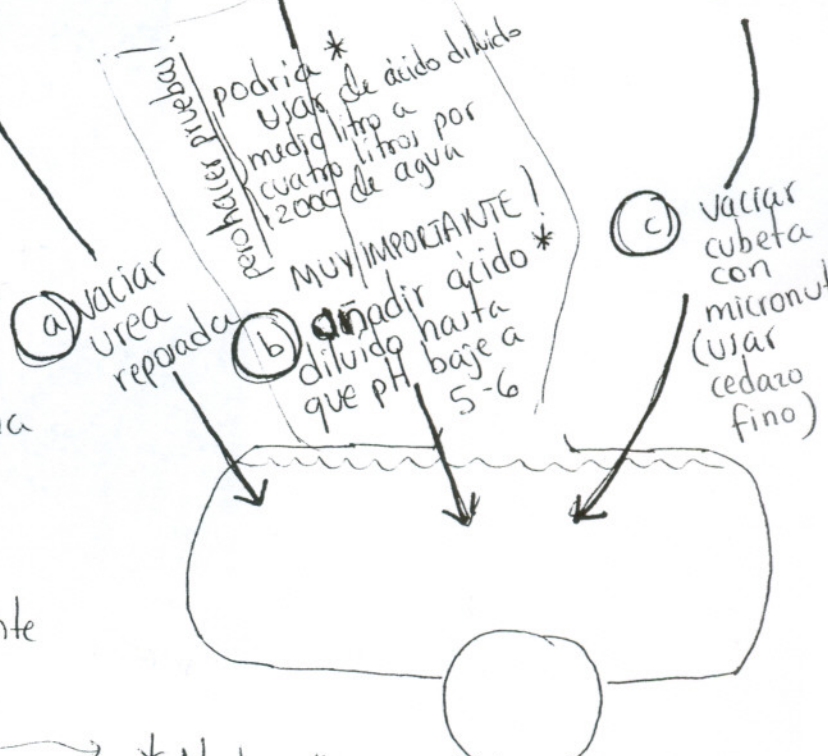 pero hacer pruebas
podría *
usar de ácido diluido
medio litro a
cuatro litros por
2000 de agua
MUY IMPORTANTE!
a) vaciar
urea
reposada
b) añadir ácido *
diluido hasta
que pH baje a
5-6
c) vaciar
cubeta
con
micronut
(usar
cedazo
fino)
a
nte
*